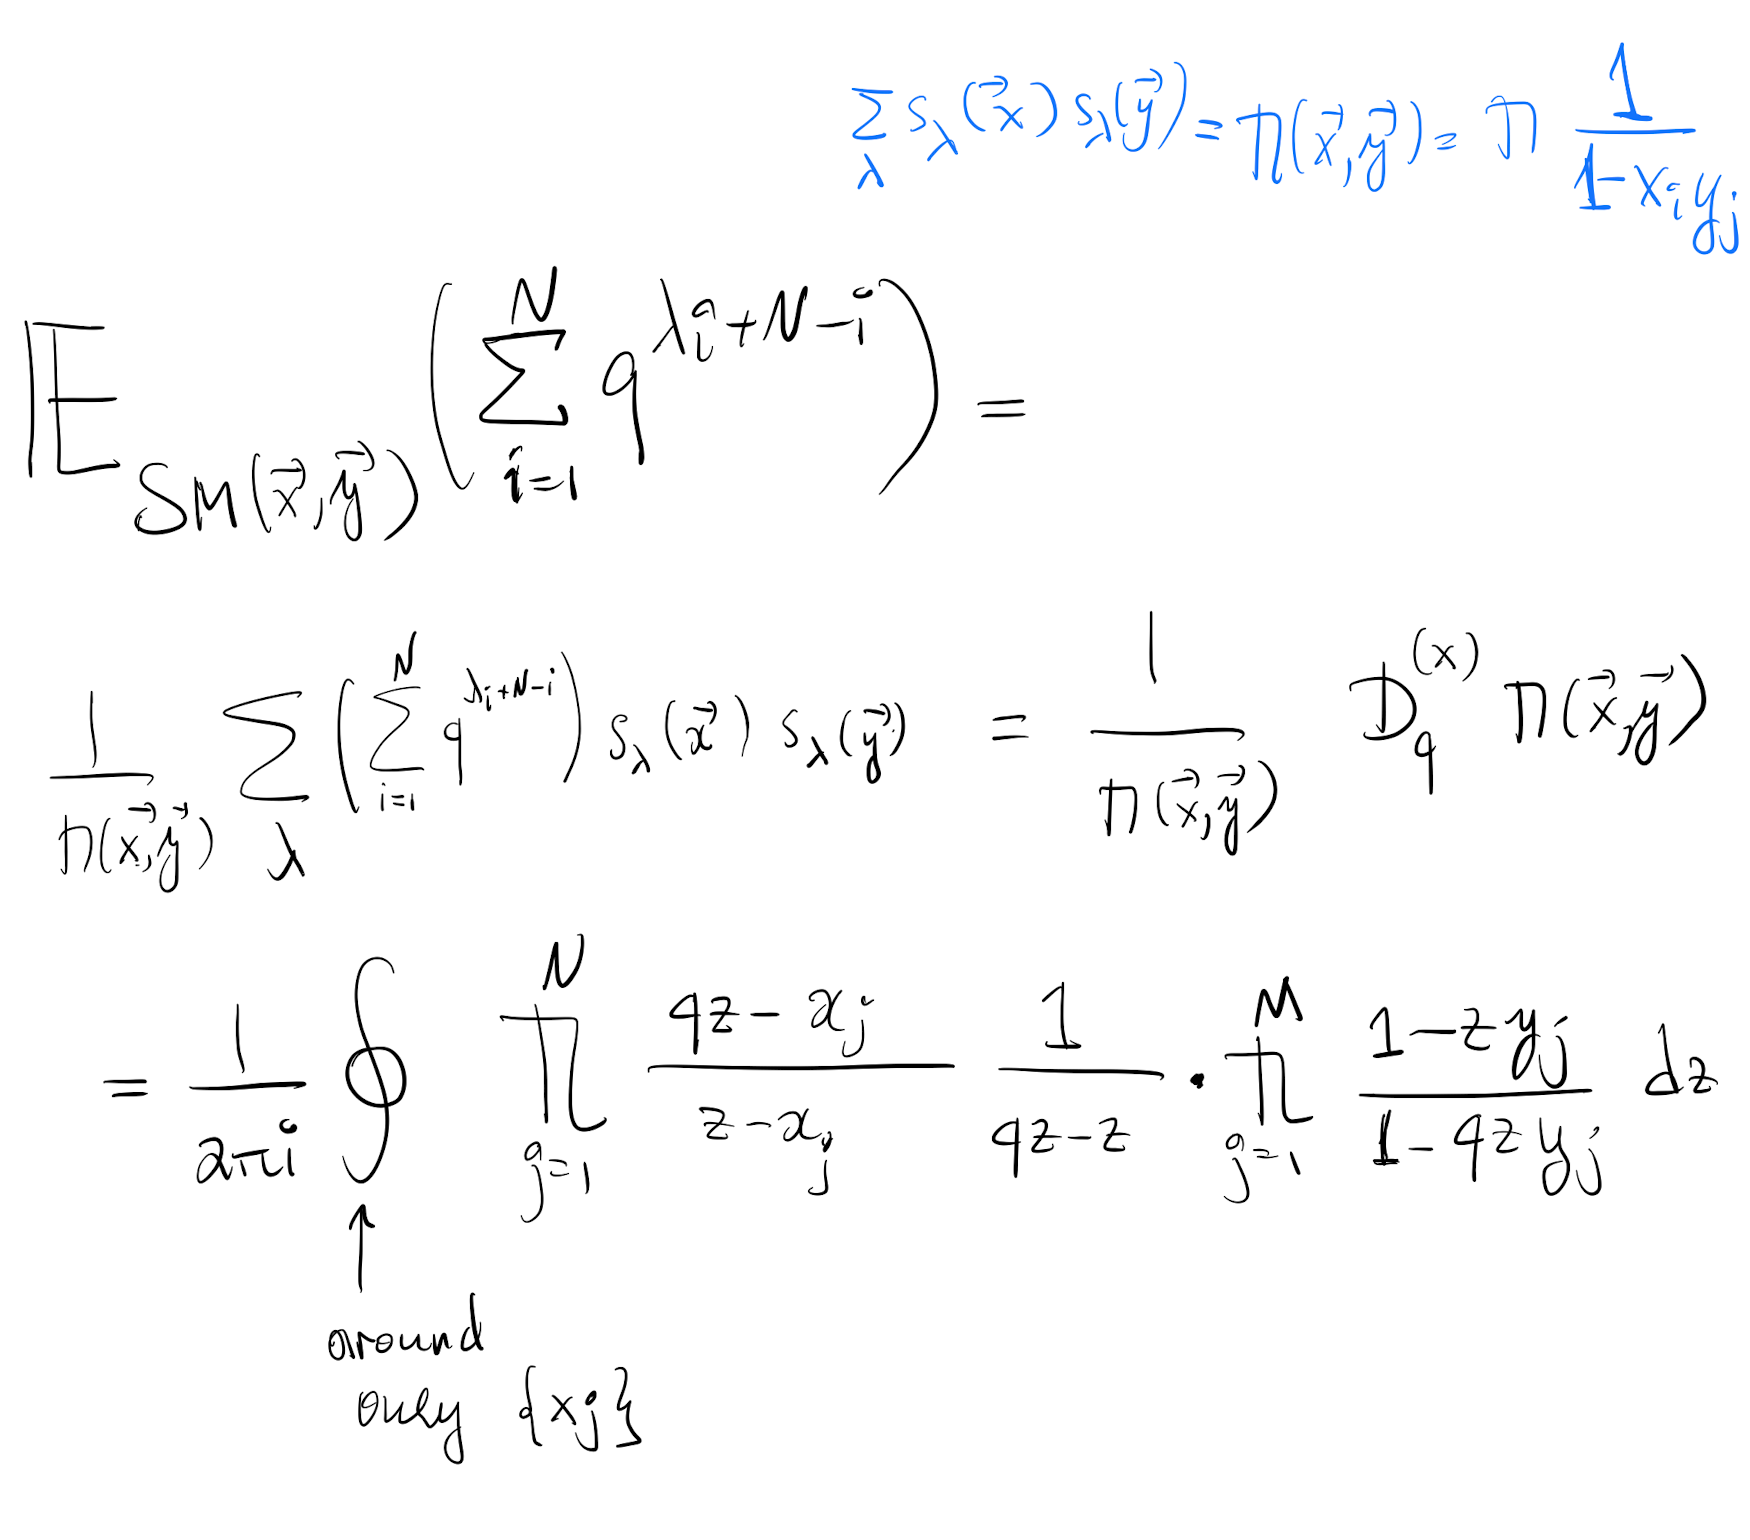 $\sum_{\lambda} s_\lambda(\vec{x}) s_\lambda(\vec{y}) = \Pi(\vec{x},\vec{y}) = \Pi \frac{1}{1-x_i y_j}$
$\mathbb{E}_{SM(\vec{x},\vec{y})} \left( \sum_{i=1}^{N} q^{\lambda_i+N-i} \right) =$
$\frac{1}{\Pi(\vec{x},\vec{y})} \sum_{\lambda} \left( \sum_{i=1}^{N} q^{\lambda_i+N-i} \right) s_\lambda(\vec{x}) s_\lambda(\vec{y}) = \frac{1}{\Pi(\vec{x},\vec{y})} D_q^{(x)} \Pi(\vec{x},\vec{y})$
$= \frac{1}{2\pi i} \oint \prod_{j=1}^{N} \frac{qz-x_j}{z-x_j} \frac{1}{qz-z} \cdot \prod_{j=1}^{M} \frac{1-zy_j}{1-qzy_j} dz$
↑
around
only $\{x_j\}$